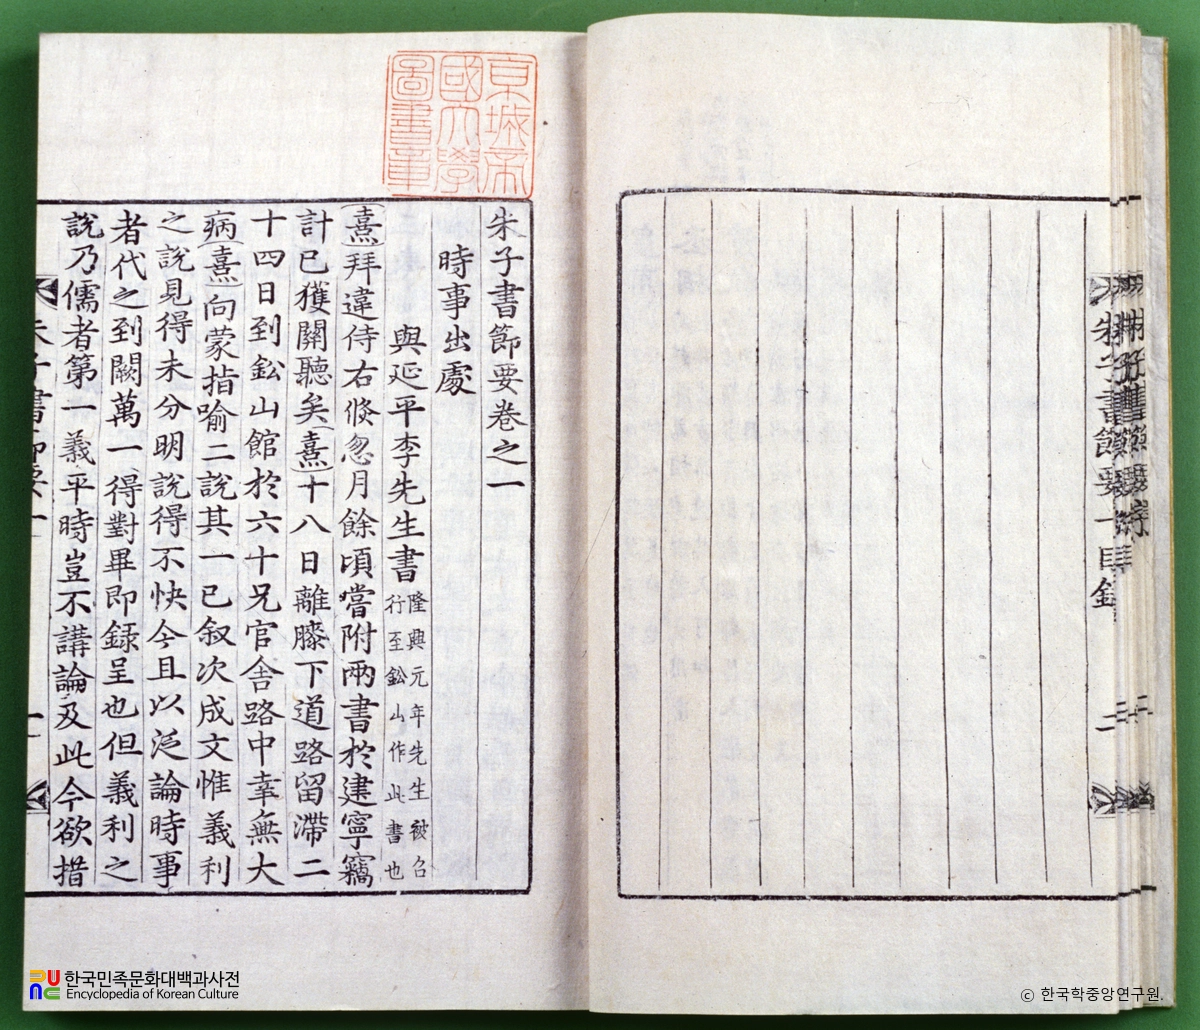 京城帝
國大學
圖書章
朱子書節要卷之一
時事出處
與延平李先生書 隆興元年先生被召
行至鈆山作此書也
熹拜違侍右倐忽月餘頃嘗附兩書於建寧竊
計已獲關聽矣熹十八日離膝下道路留滯二
十四日到鈆山館於六十兄官舎路中幸無大
病熹向蒙指喻二說其一已叙次成文惟義利
之說見得未分明說得不快今且以泛論時事
者代之到闕萬一得對畢即録呈也但義利之
說乃儒者第一義平時豈不講論及此今欲措
朱子書節要一
一
朱子書節要一目錄
二
한국민족문화대백과사전
Encyclopedia of Korean Culture
© 한국학중앙연구원.